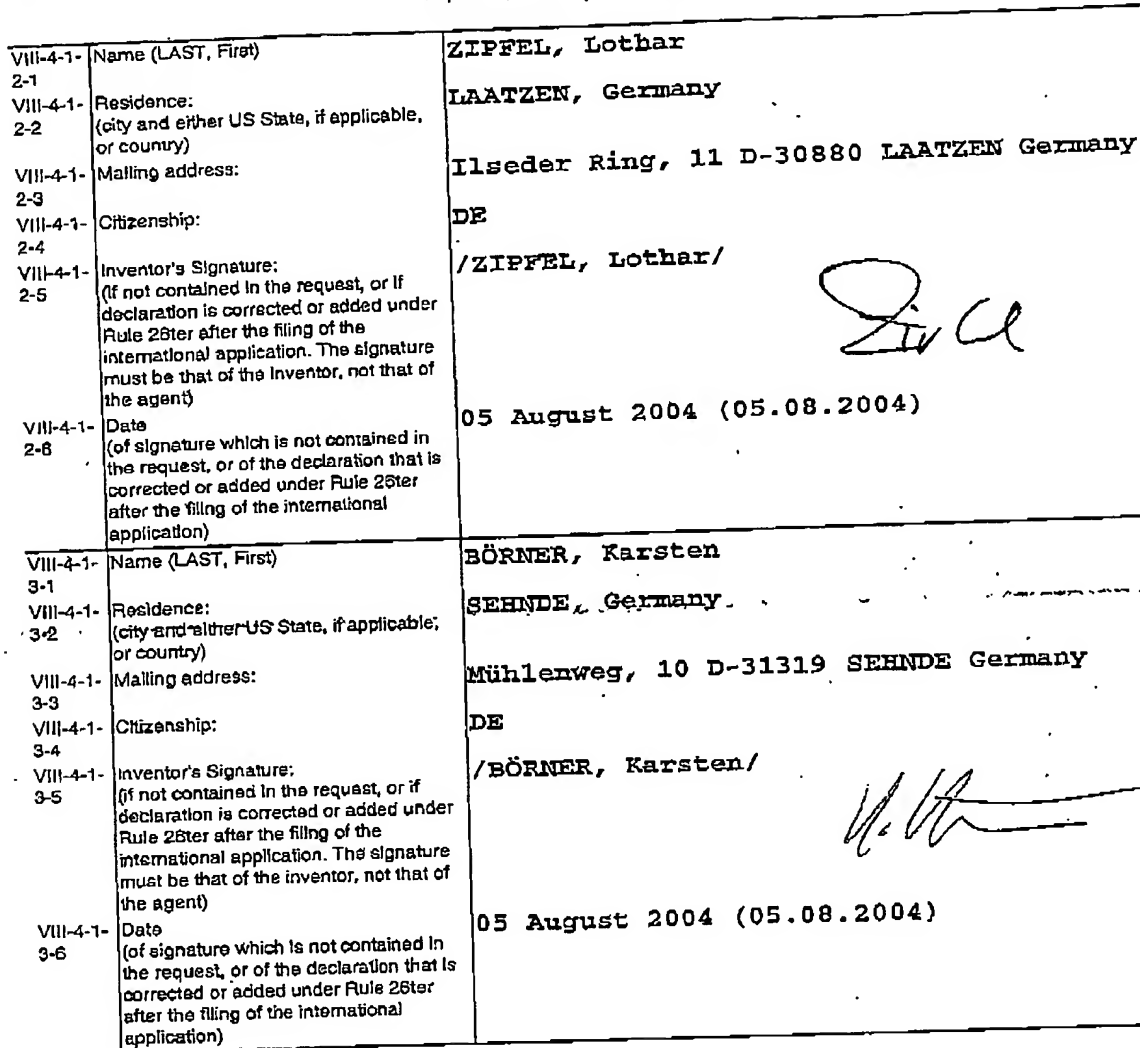 VIII-4-1- Name (LAST, First) ZIPFEL, Lothar
2-1
VIII-4-1- Residence: LAATZEN, Germany
2-2 (city and either US State, if applicable,
or country)
VIII-4-1- Mailing address: Ilseder Ring, 11 D-30880 LAATZEN Germany
2-3
VIII-4-1- Citizenship: DE
2-4
VIII-4-1- Inventor's Signature: /ZIPFEL, Lothar/
2-5 (if not contained in the request, or if
declaration is corrected or added under
Rule 26ter after the filing of the
international application. The signature
must be that of the inventor, not that of
the agent)
VIII-4-1- Date 05 August 2004 (05.08.2004)
2-6 (of signature which is not contained in
the request, or of the declaration that is
corrected or added under Rule 26ter
after the filing of the international
application)
VIII-4-1- Name (LAST, First) BÖRNER, Karsten
3-1
VIII-4-1- Residence: SEHNDE, Germany
3-2 (city and either US State, if applicable,
or country)
VIII-4-1- Mailing address: Mühlenweg, 10 D-31319 SEHNDE Germany
3-3
VIII-4-1- Citizenship: DE
3-4
VIII-4-1- Inventor's Signature: /BÖRNER, Karsten/
3-5 (if not contained in the request, or if
declaration is corrected or added under
Rule 26ter after the filing of the
international application. The signature
must be that of the inventor, not that of
the agent)
VIII-4-1- Date 05 August 2004 (05.08.2004)
3-6 (of signature which is not contained in
the request, or of the declaration that is
corrected or added under Rule 26ter
after the filing of the international
application)